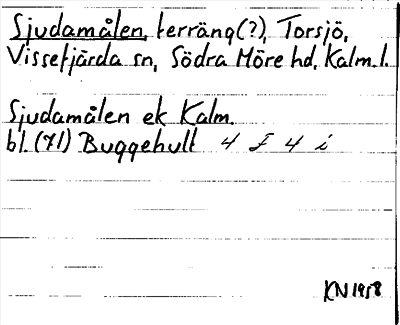 Sjudamålen, terräng(?), Torsjö,
Vissefjärda sn, Södra Möre hd, Kalm. l.
Sjudamålen ek Kalm.
bl. (71) Buggehult 4 F 4 i
KN 1958